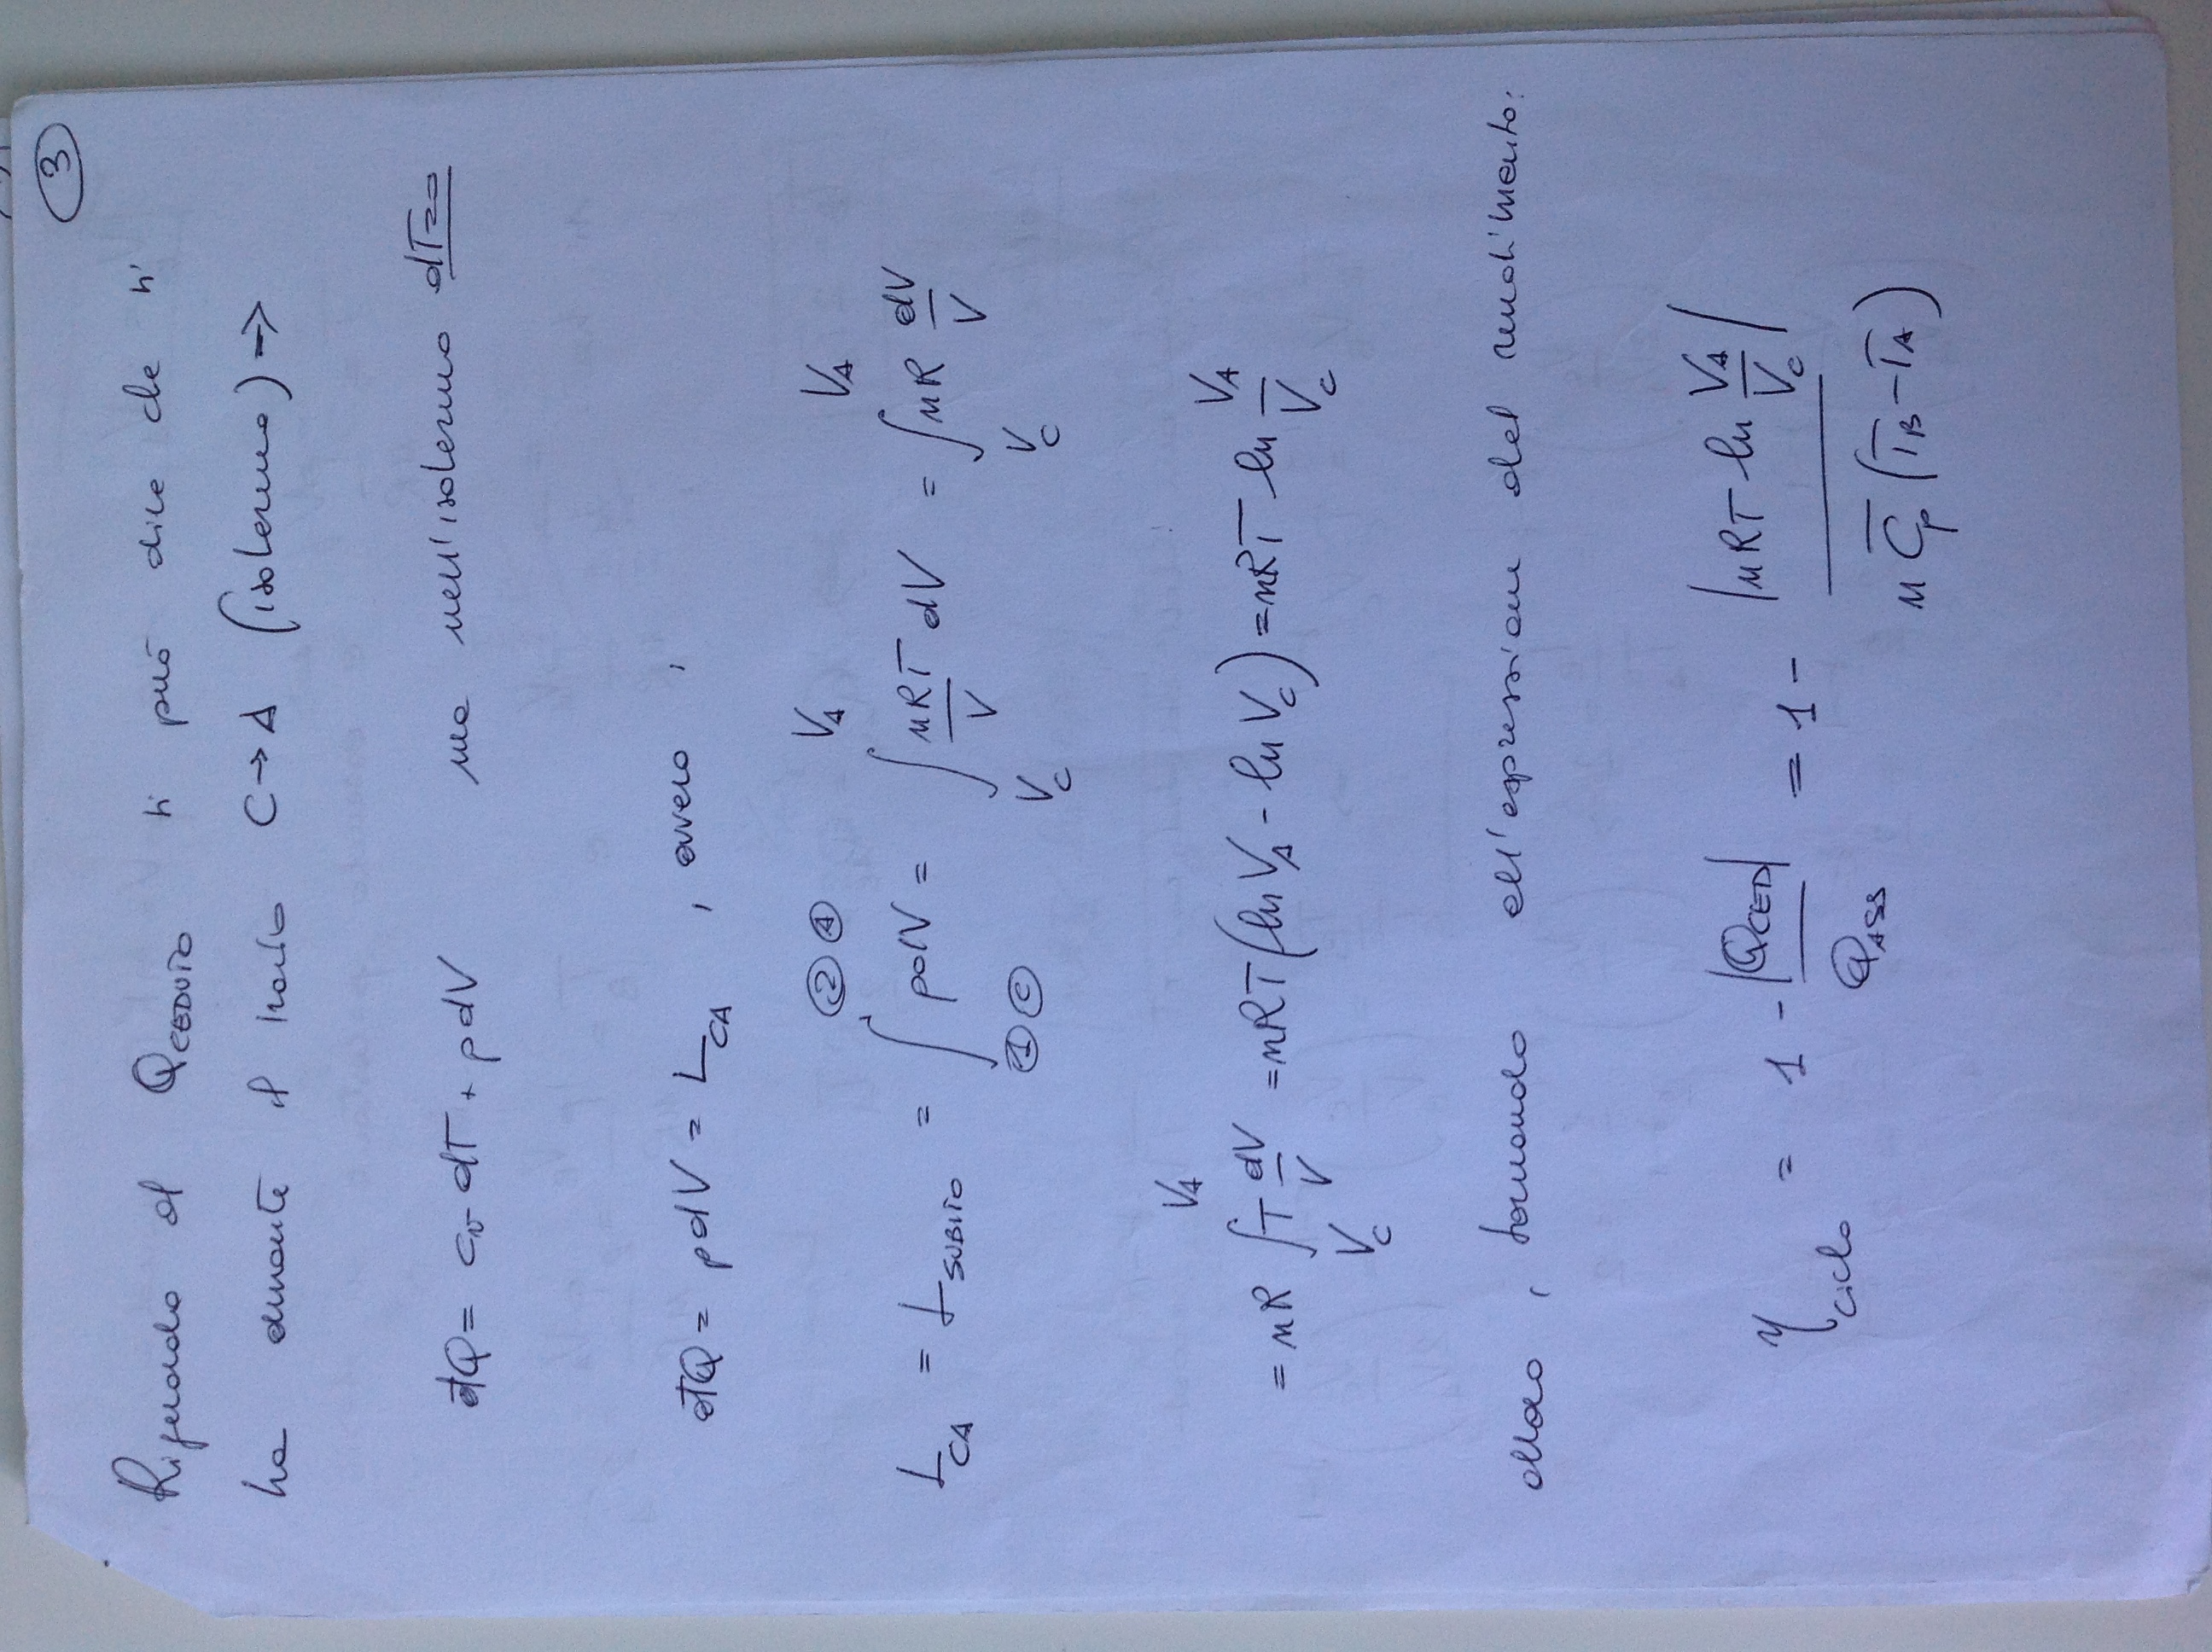 3
Riguardo al QCEDUTO si può dire che si
ha durante il tratto C→A (isoterma) →
đQ = cv dT + pdV ma nell'isoterma dT=0
đQ = pdV = L_CA , ovvero ,
L_CA = L_SUBITO = ∫_{① Ⓒ}^{② Ⓐ} pdV = ∫_{V_C}^{V_A} nRT/V dV = ∫_{V_C}^{V_A} nR dV/V
= nR ∫_{V_C}^{V_A} T dV/V = nRT (ln V_A - ln V_C) = nRT ln V_A/V_C
allora , tornando all'espressione del rendimento:
η_ciclo = 1 - |QCED|/QASS = 1 - |nRT ln V_A/V_C| / n C̅p (T_B - T_A)